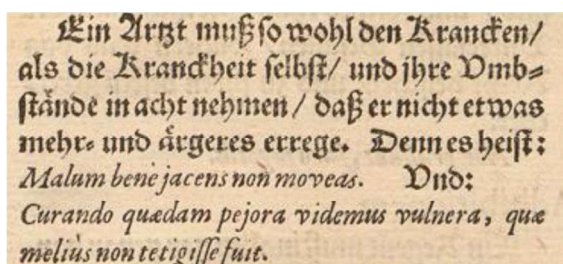 Ein Artzt muß so wohl den Krancken/
als die Kranckheit selbst/ und jhre Vmb⸗
stände in acht nehmen/ daß er nicht etwas
mehr⸗ und ärgeres errege. Denn es heist:
Malum benè jacens non moveas. Vnd:
Curando quædam pejora videmus vulnera, quæ
melius non tetigisse fuit.